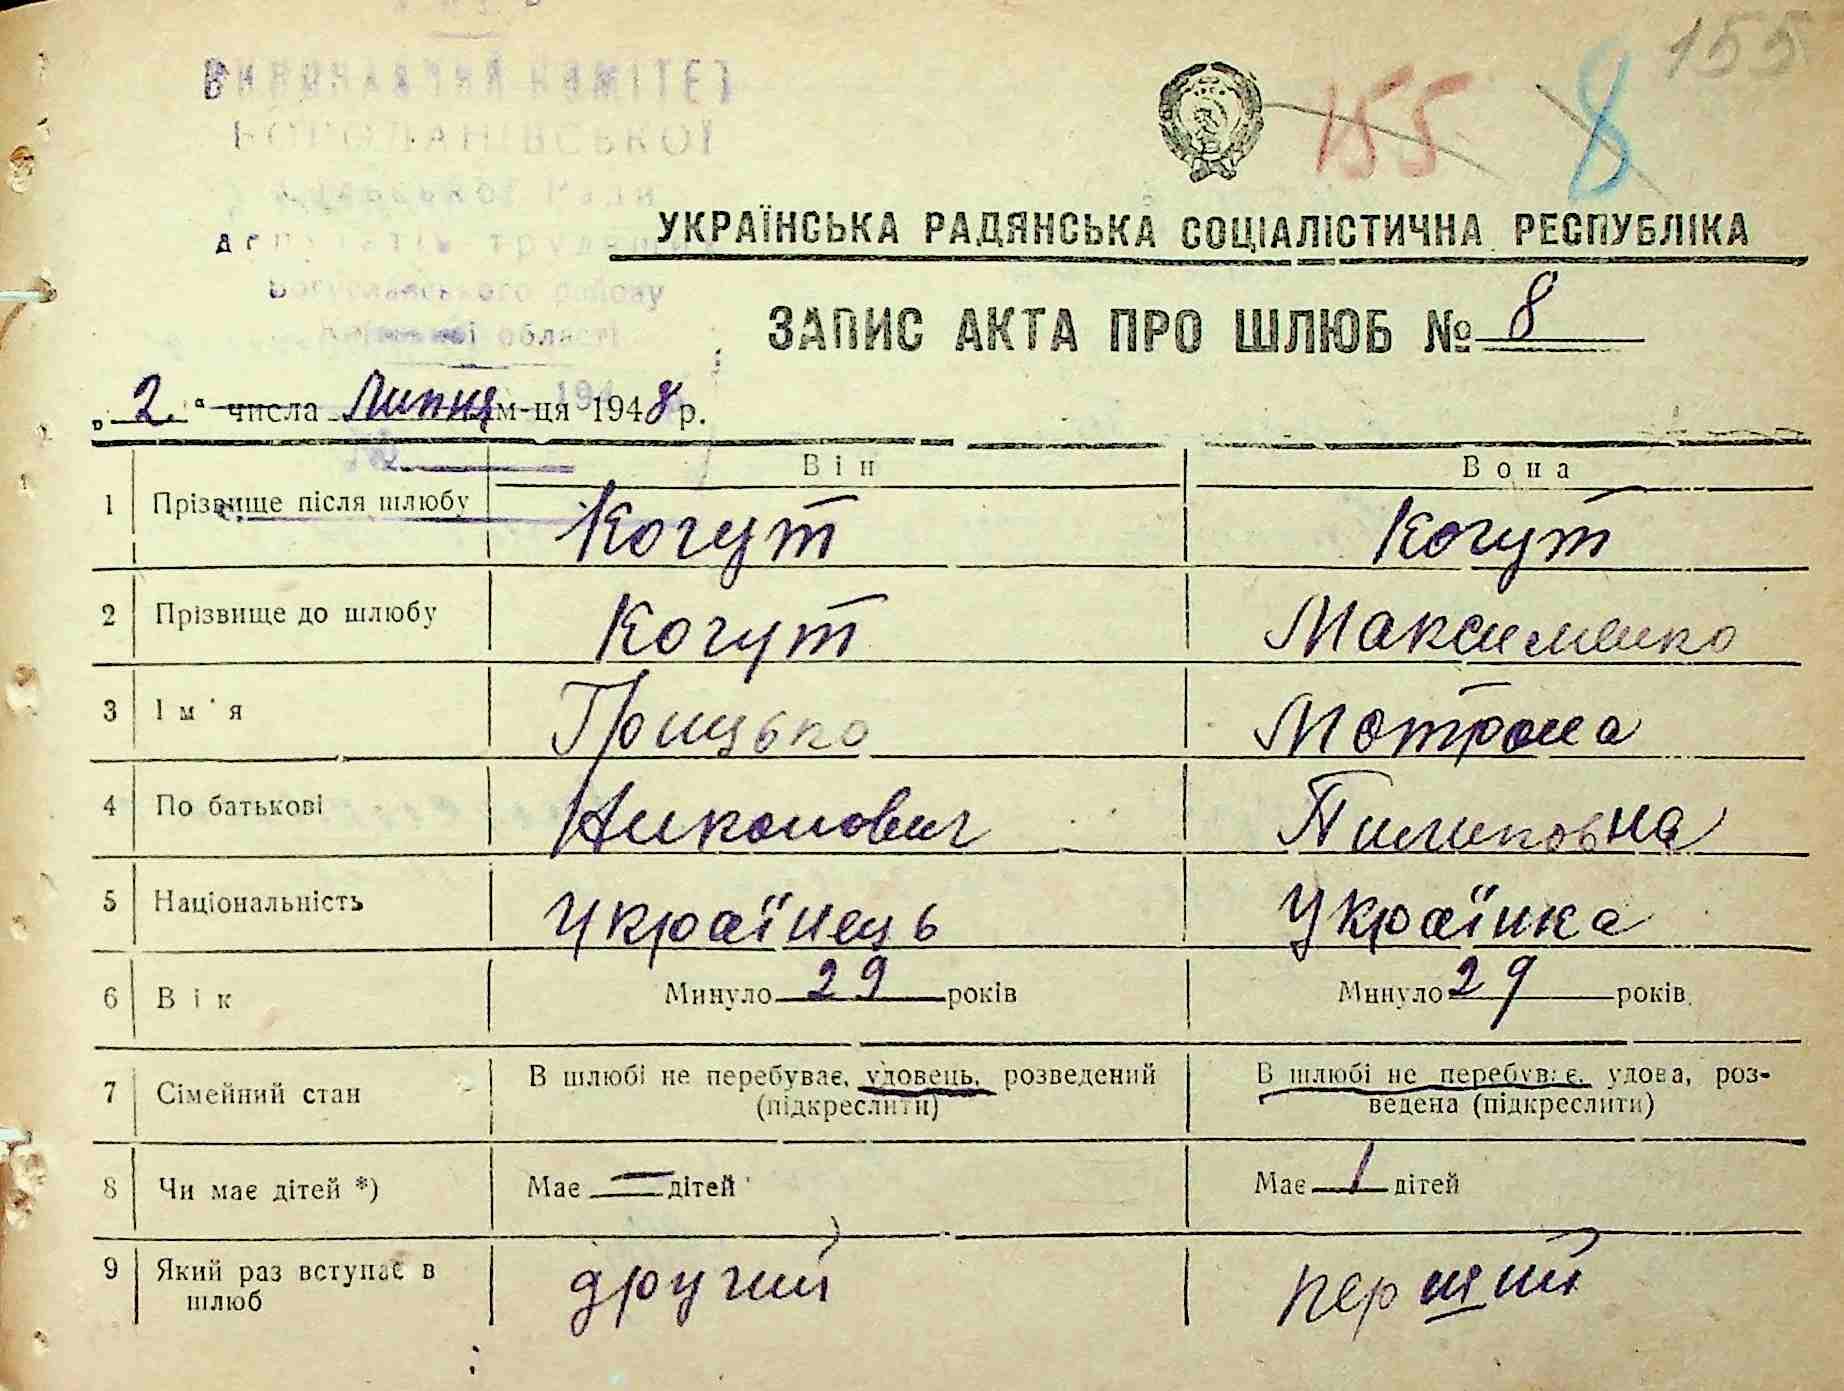 155
155 8
ВИКОНАВЧИЙ КОМІТЕТ
депутатів трудящих
Богуславського району
Київської області
УКРАЇНСЬКА РАДЯНСЬКА СОЦІАЛІСТИЧНА РЕСПУБЛІКА
ЗАПИС АКТА ПРО ШЛЮБ № 8
„2." числа Липня м-ця 1948 р.
Він Вона
1 Прізвище після шлюбу Когут Когут
2 Прізвище до шлюбу Когут Максименко
3 Ім'я Грицько Мотрона
4 По батькові Никонович Пилиповна
5 Національність Українець Українка
6 Вік Минуло 29 років Минуло 29 років
7 Сімейний стан В шлюбі не перебуває, удовець, розведений (підкреслити) В шлюбі не перебуває, удова, роз-
ведена (підкреслити)
8 Чи має дітей *) Має — дітей Має 1 дітей
9 Який раз вступає в шлюб другий перший